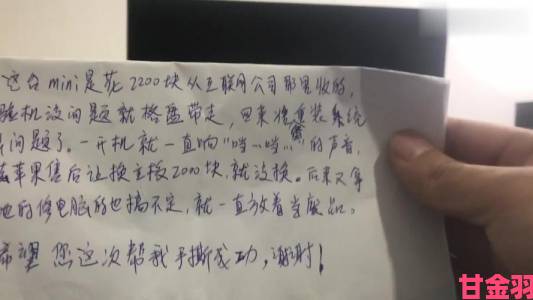 这台mini是花2200块从互联网公司那里收的,
验机没问题就格盘带走,回来将重装系统
问题了。一开机就一直响"当当当"的声音,
苹果售后让换主板2000块,就没换。后来又拿
他的修电脑的也搞不定,就一直放着当废品。
希望 您这次帮我手撕成功,谢谢!
甘金羽